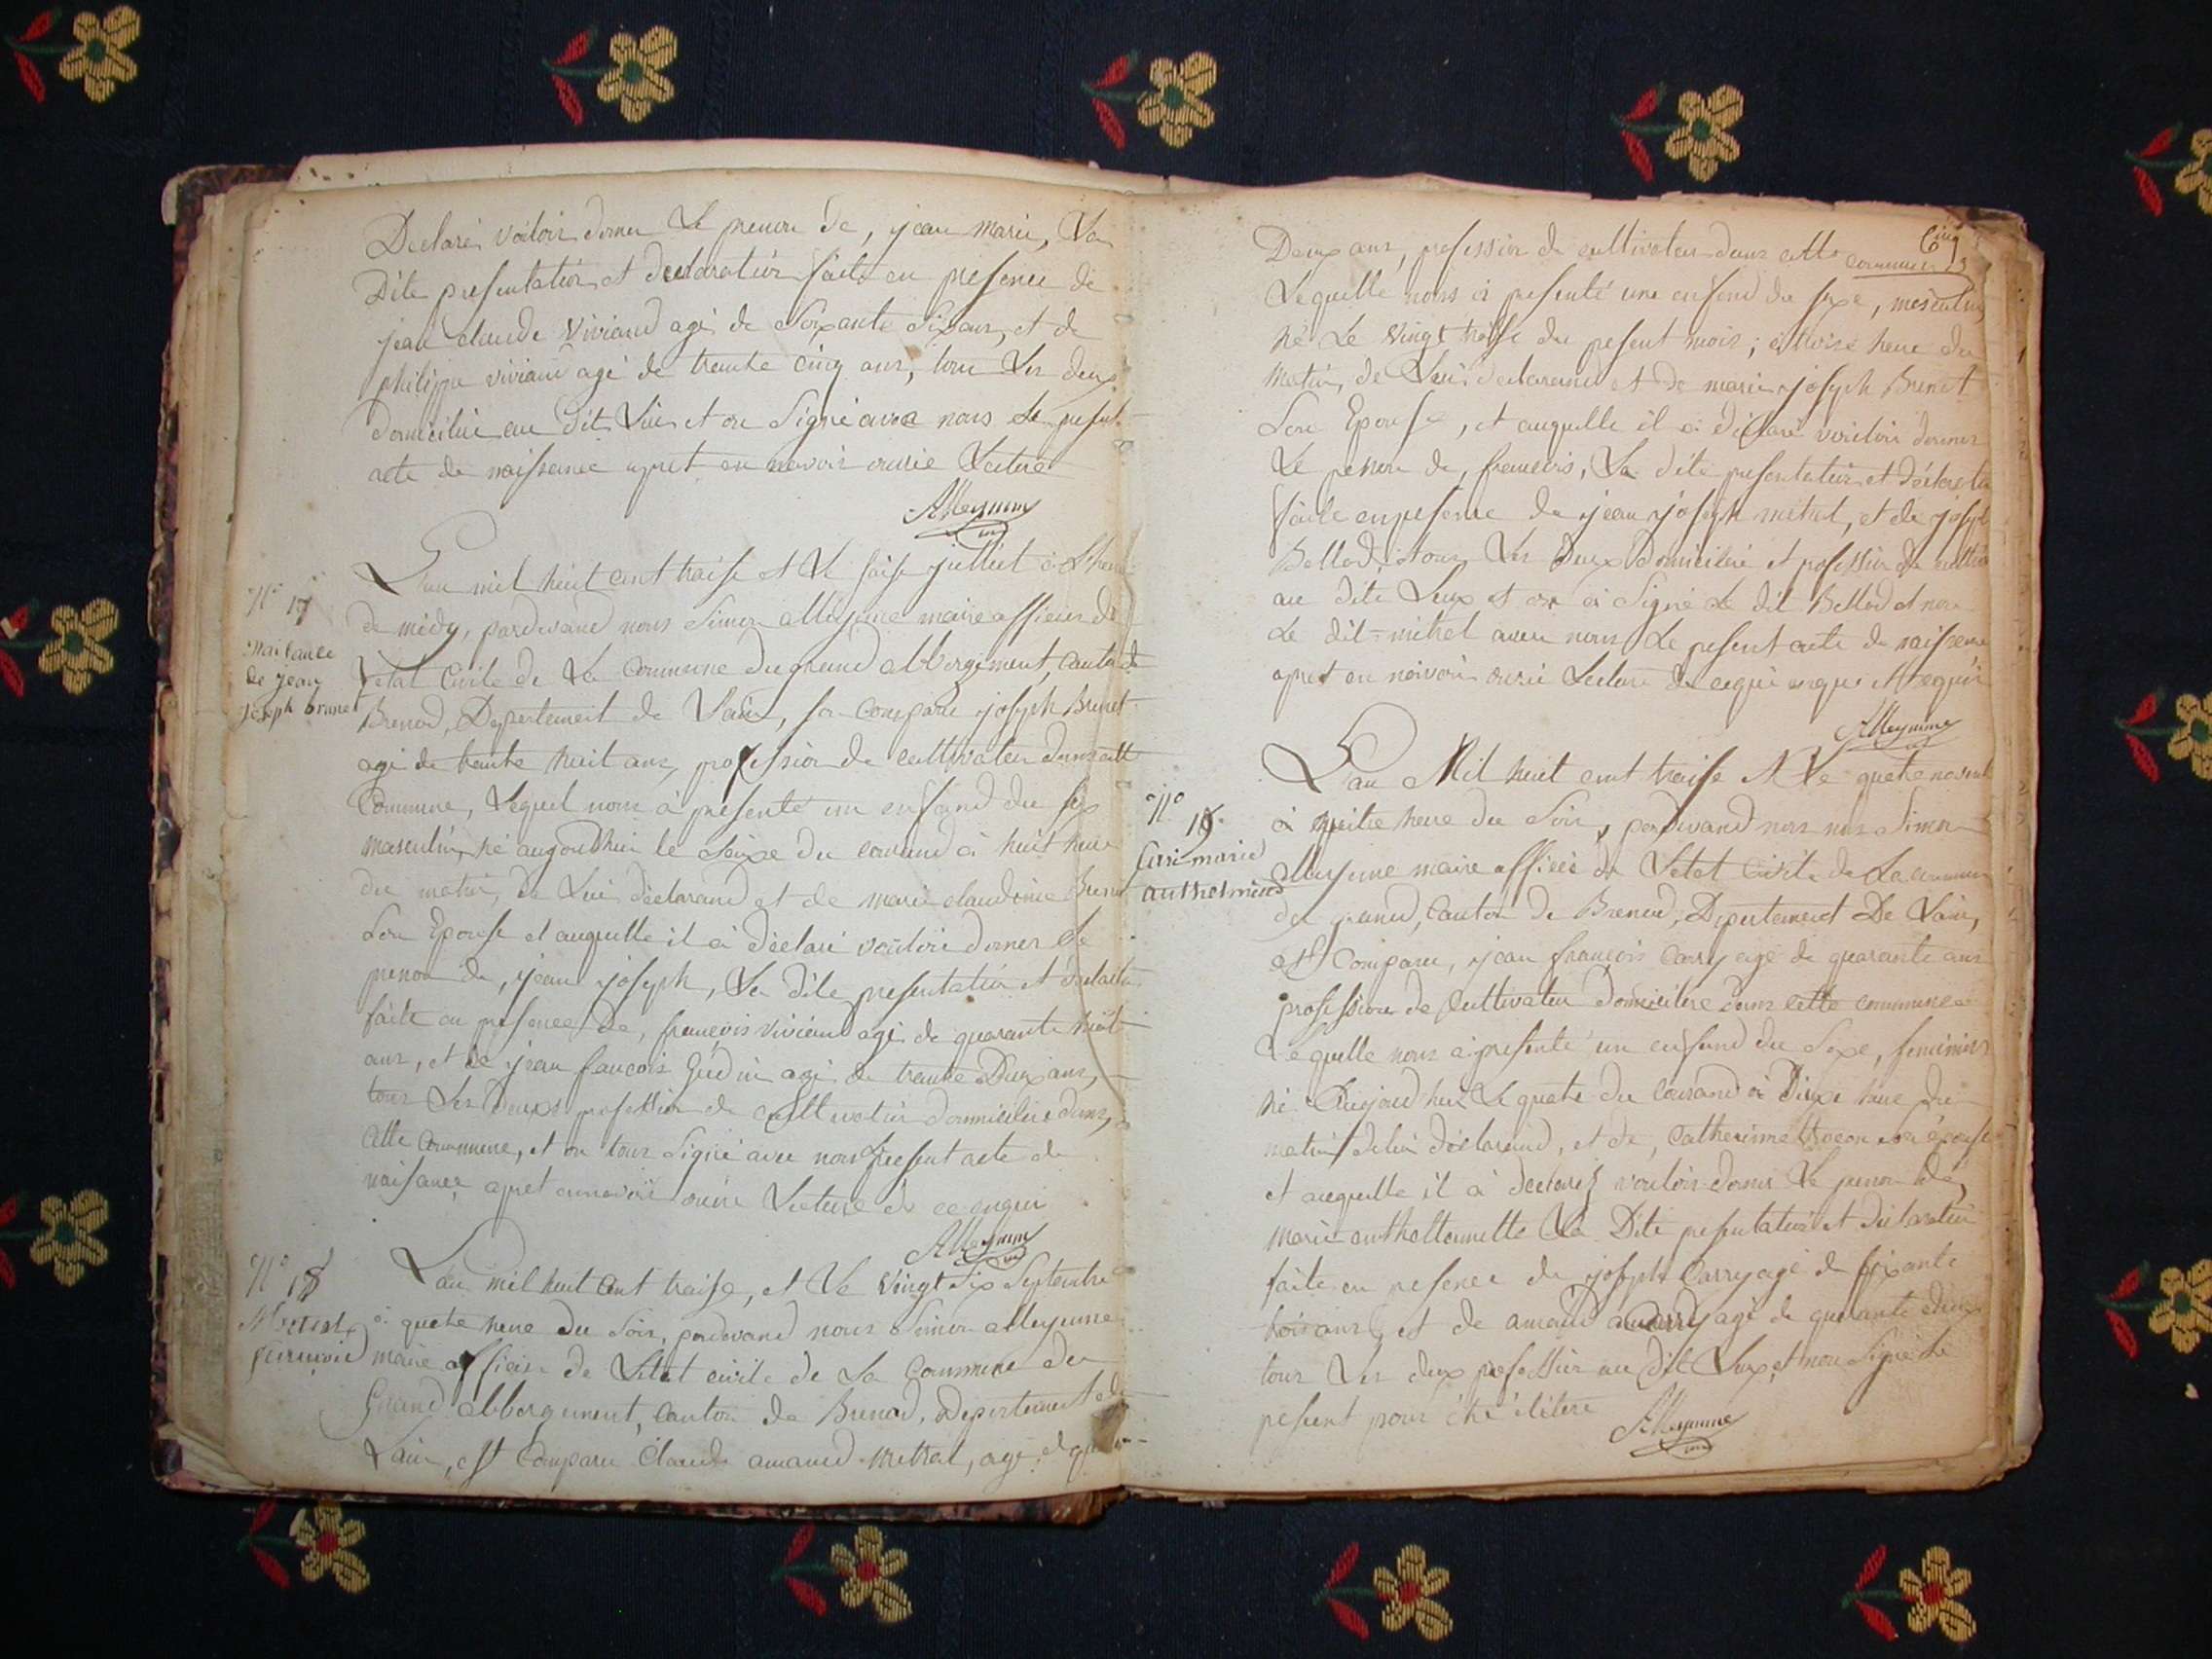 Declaré vouloir donner Le prenom de, jean marie, La
Dite presentation et declaration faite en presence de
jean claude Viviand agé de Soixante Six ans, et de
philippe viviand agé de trente cinq ans, tous Les deux
domicilié au dit Lieu et on Signé avec nous Le present
acte de naissance apret en navoir ouvie Lecture
AMeynme
N° 17
Naisance
de jean
joseph brunet
Lan mil huit cent traise et Le saise juilliet à Lheure
de midy, pardevand nous Simon alleyme maire officier de
Letat Civile de La Commune du grand abbergement, canton de
Brenod, Departement de Lain, est Comparu joseph Brunet
agé de trente huit ans, profession de cultivateur dans cette
Commune, Lequel nous à presenté un enfand du sex
masculin, né aujourdhui le Seize du courand à huit heure
du matin, de Lui déclarand et de marie claudine Brunet
Son Epouse et auquelle il à déclaré vouloire donner Le
prenom de, jean joseph, La dite presentation et declaration
faite en presence de, françois viviand agé de quarante huit
ans, et de jean francois Gudin agé de trente Deux ans,
tous Les deux profession de cultivateur domicilié dans
Cette Commune, et on tous Signé avec nous Le present acte de
naisance, apret ennavoir ouvie Lecture de ce enqui
AMeynme
N° 18
Metral
francois
Lan mil huit Cent traise, et Le vingt Six Septembre
à quatre heure du Soir, pardevand nous Simon alleyme
maire officier de Letat civile de La Commune du
Grand abbergement, Canton de Brenod, Departement de
Lain, est Comparu Claude amand metral, agé de
Cinq
Deux ans, profession de cultivateur dans cette commune
Lequelle nous à presenté une enfend du sexe, mesculin,
né Le vingt traise du present mois, à troise heure du
Matin, de Lui declarand et de marie joseph Brunet
Son Epouse, et auquelle il à déclaré vouloir donner
Le penom de, francois, La dite presentation et déclaration
faite en presence de jean joseph metral, et de joseph
Bellod, tous Les Deux domicilié et profession de cultiv
au dite Lieux et on à Signé Le dit Bellod et non
Le dit metral avec nous Le pesent acte de naissence
apret en navoir ouvie Lecture
AMeynme
N°
19
Carri marie
anthelmette
Lan Mil huit cent traise et Le quatre novembre
à heure du Soir, pardevand nous Simon
alleyme maire officié de Letat Civile de La commune
du grand, Canton de Brenod, Departement De Lain,
est Comparu, jean françois Carry agé de quarante ans
profession de Cultivateur domicilié dans cette commune
Lequelle nous à presenté un enfand du Sexe, feminin
né Aujourdhui Le quatre du Courand à Dix heure du
matin de lui déclarand, et de, Catherinne son épouse
et auquelle il à declaré vouloir donner Le prenom de,
marie anthelmette La Dite presentation et declaration
faite en presence de joseph Carry agé de soixante
trois ans, et de amand Carry agé de quarante deux
tous Les deux profession au dit Lieux, et non Signé Le
pesent pour
AMeynme